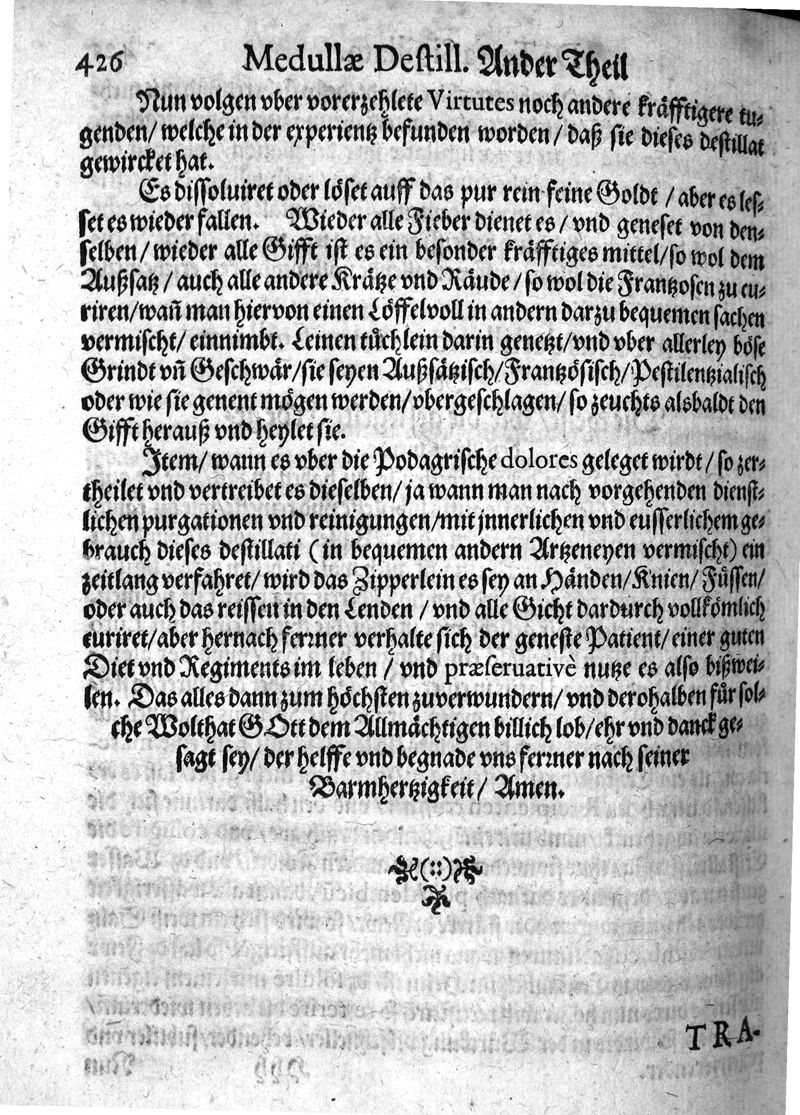 426 Medullæ Destill. Ander Theil
Nun volgen vber vorerzehlete Virtutes noch andere kräfftigere tu-
genden/ welche in der experientz befunden worden/ daß sie dieses destillat
gewircket hat.
Es dissoluiret oder löset auff das pur rein feine Goldt / aber es les-
set es wieder fallen. Wieder alle Fieber dienet es/ vnd geneset von den-
selben/ wieder alle Gifft ist es ein besonder kräfftiges mittel/ so wol dem
Außsatz/ auch alle andere Krätze vnd Räude/ so wol die Frantzosen zu cu-
riren/ wañ man hiervon einen Löffelvoll in andern darzu bequemen sachen
vermischt/ einnimbt. Leinen tüchlein darin genetzt/ vnd vber allerley böse
Grindt vñ Geschwär/ sie seyen Außsätzisch/ Frantzösisch/ Pestilentzialisch
oder wie sie genent mögen werden/ vbergeschlagen/ so zeuchts alsbaldt den
Gifft herauß vnd heylet sie.
Item/ wann es vber die Podagrische dolores geleget wirdt/ so zer-
theilet vnd vertreibet es dieselben/ ja wann man nach vorgehenden dienst-
lichen purgationen vnd reinigungen/ mit jnnerlichen vnd eusserlichem ge-
brauch dieses destillati ( in bequemen andern Artzeneyen vermischt) ein
zeitlang verfahret/ wird das Zipperlein es sey an Händen/ Knien/ Füssen/
oder auch das reissen in den Lenden / vnd alle Gicht dardurch vollkömlich
curiret/ aber hernach ferrner verhalte sich der geneste Patient/ einer guten
Diet vnd Regiments im leben / vnd præseruativè nutze es also bißwei-
len. Das alles dann zum höchsten zuverwundern/ vnd derohalben für sol-
che Wolthat GOtt dem Allmächtigen billich lob/ ehr vnd danck ge-
sagt sey/ der helffe vnd begnade vns ferrner nach seiner
Barmhertzigkeit/ Amen.
(::)
TRA-